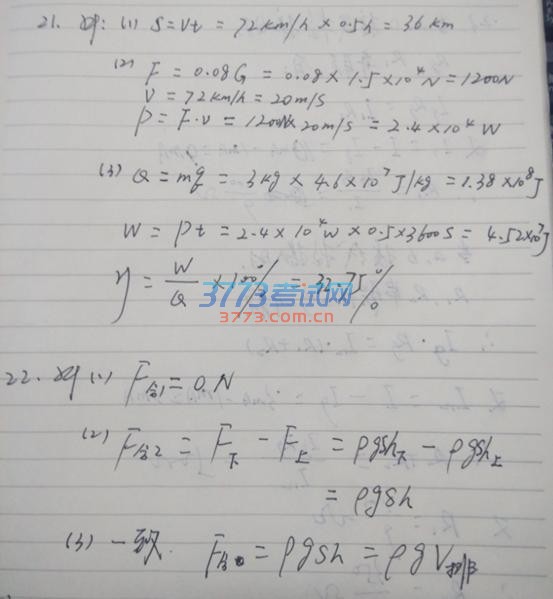 21. 解: (1) S=Vt = 72km/h × 0.5h = 36km
(2) F = 0.08G = 0.08 × 1.5×10⁴N = 1200N
V = 72km/h = 20m/s
P = F·v = 1200N×20m/s = 2.4×10⁴W
(3) Q = mq = 3kg × 4.6×10⁷J/kg = 1.38×10⁸J
W = Pt = 2.4×10⁴W × 0.5×3600s = 4.52×10⁷J
η = W/Q ×100% = 32.75%
3773考试网
3773.com.cn
22. 解 (1) F合1 = 0N
(2) F合2 = F下 - F上 = ρgsh下 - ρgsh上
= ρgsh
(3) 一致. F合 = ρgsh = ρgV排